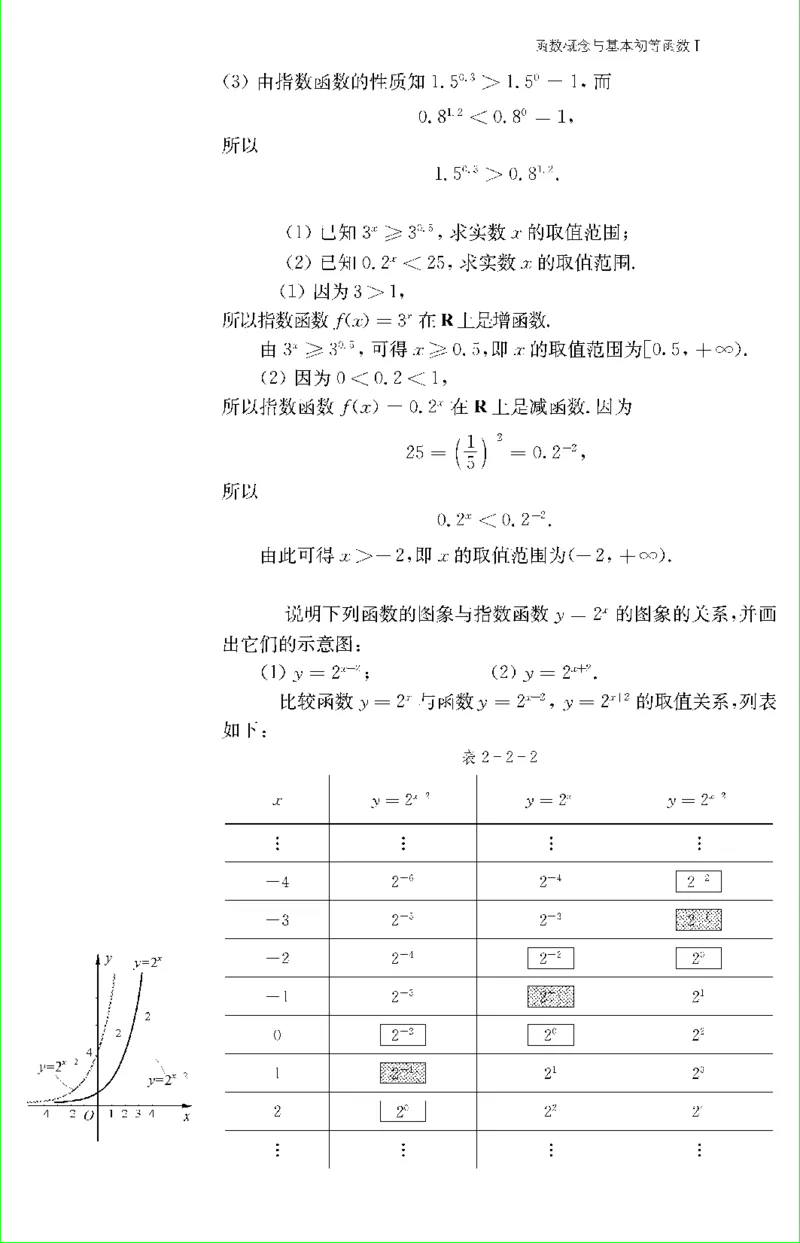 函数概念与基本初等函数 I
(3) 由指数函数的性质知 1.5^{0.3} > 1.5^0 = 1, 而
0.8^{1.2} < 0.8^0 = 1,
所以
1.5^{0.3} > 0.8^{1.2}.
(1) 已知 3^x ⩾ 3^{0.5}, 求实数 x 的取值范围;
(2) 已知 0.2^x < 25, 求实数 x 的取值范围.
(1) 因为 3 > 1,
所以指数函数 f(x) = 3^x 在 R 上是增函数.
由 3^x ⩾ 3^{0.5}, 可得 x ⩾ 0.5, 即 x 的取值范围为[0.5, +∞).
(2) 因为 0 < 0.2 < 1,
所以指数函数 f(x) = 0.2^x 在 R 上是减函数. 因为
25 = (1/5)^{-2} = 0.2^{-2},
所以
0.2^x < 0.2^{-2}.
由此可得 x > -2, 即 x 的取值范围为(-2, +∞).
说明下列函数的图象与指数函数 y = 2^x 的图象的关系, 并画
出它们的示意图:
(1) y = 2^{x-2}; (2) y = 2^{x+2}.
比较函数 y = 2^x 与函数 y = 2^{x-2}, y = 2^{x+2} 的取值关系, 列表
如下:
表 2-2-2
x y = 2^{x-2} y = 2^x y = 2^{x+2}
⋮ ⋮ ⋮ ⋮
-4 2^{-6} 2^{-4} 2^{-2}
-3 2^{-5} 2^{-3} 2^{-1}
-2 2^{-4} 2^{-2} 2^0
-1 2^{-3} 2^{-1} 2^1
0 2^{-2} 2^0 2^2
1 2^{-1} 2^1 2^3
2 2^0 2^2 2^4
⋮ ⋮ ⋮ ⋮
y y=2^x
2
2
4
y=2^{x+2}
y=2^{x-2}
4 2 O 1 2 3 4 x